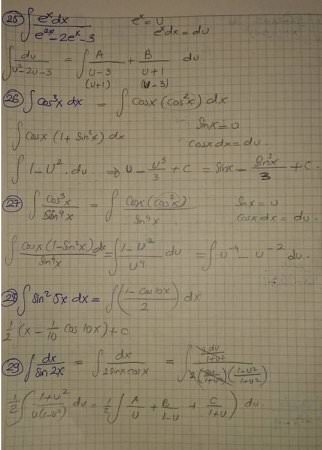 25) ∫ eˣdx / (e²ˣ - 2eˣ - 3)   eˣ = u
eˣdx = du
∫ du / (u² - 2u - 3) = ∫ A / (u-3) + B / (u+1) du
(u+1) (u-3)
26) ∫ cos³x dx = ∫ cosx (cos²x) dx
∫ cosx (1 + sin²x) dx   sinx = u
cosxdx = du.
∫ 1 - u² . du ⇒ u - u³/3 + c = sinx - sin³x/3 + c.
27) ∫ cos³x / sin⁴x = ∫ cosx (cos²x) / sin⁴x   sinx = u
cosxdx = du.
∫ cosx (1 - sin²x) dx / sin⁴x = ∫ (1 - u²) / u⁴ du = ∫ u⁻⁴ - u⁻² du.
28) ∫ sin²5x dx = ∫ ( (1 - cos10x) / 2 ) dx
1/2 (x - 1/10 cos10x) + c
29) ∫ dx / sin2x = ∫ dx / 2sinxcosx = ∫
1/2 ∫ (1+u²) / u(1-u²) du = 1/2 ∫ ( A/u + B/(1-u) + C/(1+u) ) du.